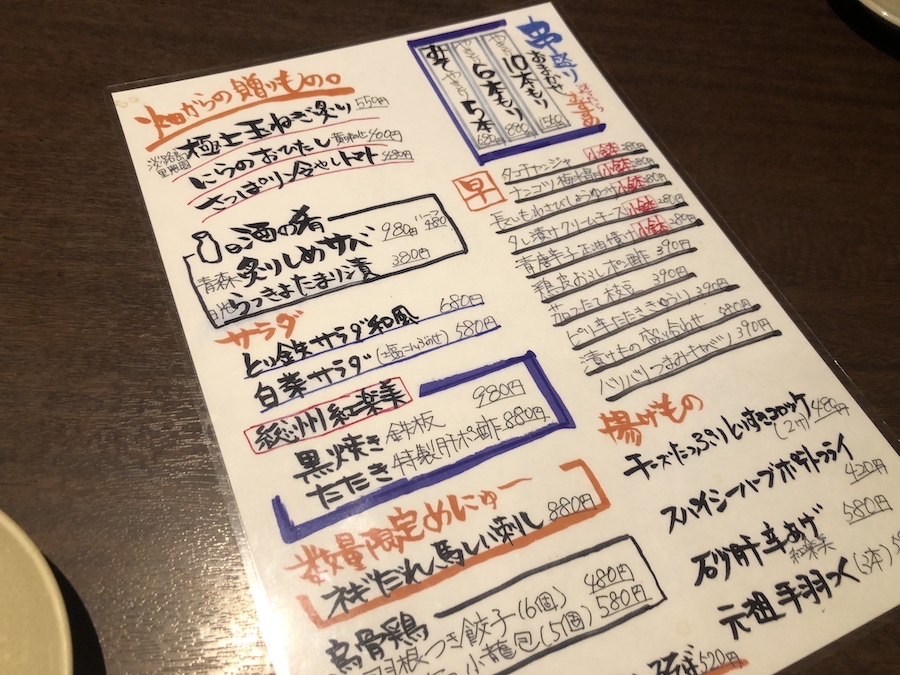 畑からの贈りもの。
淡路島 極上玉ねぎ炙り 550円
にらのおひたし 黄身のせ 460円
さっぱり冷やしトマト 480円
酒の肴
青森 炙りしめサバ 980円 ハーフ 480
らっきょたまり漬 380円
サラダ
とり鉄サラダ和風 680円
白菜サラダ(塩こんぶのせ) 580円
総州紅楽美
黒焼き 鉄板 980円
たたき 特製肝ポン酢 880円
数量限定めにゅー
ネギだれ馬しい刺し 880円
烏骨鶏
羽根つき餃子(6個) 480円
小籠包(5個) 580円
串盛り
おまかせ10本もり 1560
やきとり6本もり
やきとり5本 680円
早
タコチャンジャ 小鉢 280円
ナンコツ梅水晶 小鉢 280円
長いもわさびしょうゆづけ 小鉢 280円
タレ漬けクリームチーズ 小鉢 280円
青唐辛子正油漬け 小鉢 280円
鶏皮おろしポン酢 390円
茹ったて枝豆 390円
ピリ辛たたききゅうり 390円
漬けもの盛り合わせ 580円
バリバリつまみキャベツ 390円
揚げもの
チーズたっぷりとりすきコロッケ (2ケ) 480円
スパイシーハーブポテトフライ 430円
砂肝辛あげ 580円
紅楽美
元祖手羽つく(3本)
そば 520円